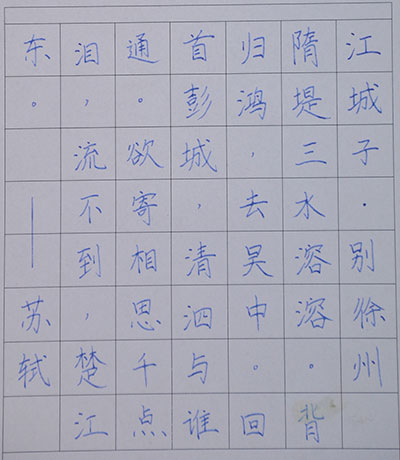 江城子·别徐州
隋堤三水溶溶。背
归鸿,去昊中。回
首彭城,清泗与谁
通。欲寄相思千点
泪,流不到,楚江
东。——苏轼